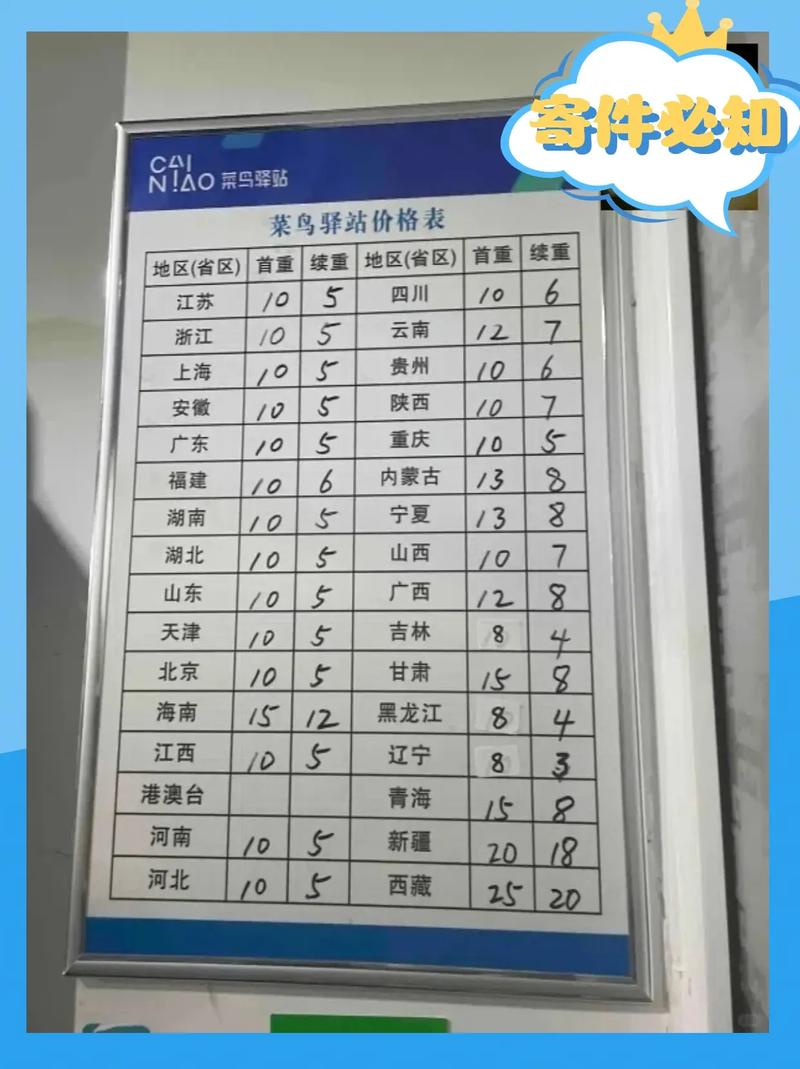 寄件必知
CAI
NIAO 菜鸟驿站
菜鸟驿站价格表
地区(省区) 首重 续重 地区(省区) 首重 续重
江苏 10 5 四川 10 6
浙江 10 5 云南 12 7
上海 10 5 贵州 10 6
安徽 10 5 陕西 10 7
广东 10 5 重庆 10 5
福建 10 6 内蒙古 13 8
湖南 10 5 宁夏 13 8
湖北 10 5 山西 10 7
山东 10 5 广西 12 8
天津 10 5 吉林 8 4
北京 10 5 甘肃 15 8
海南 15 12 黑龙江 8 4
江西 10 5 辽宁 8 3
港澳台 青海 15 8
河南 10 5 新疆 20 18
河北 10 5 西藏 25 20